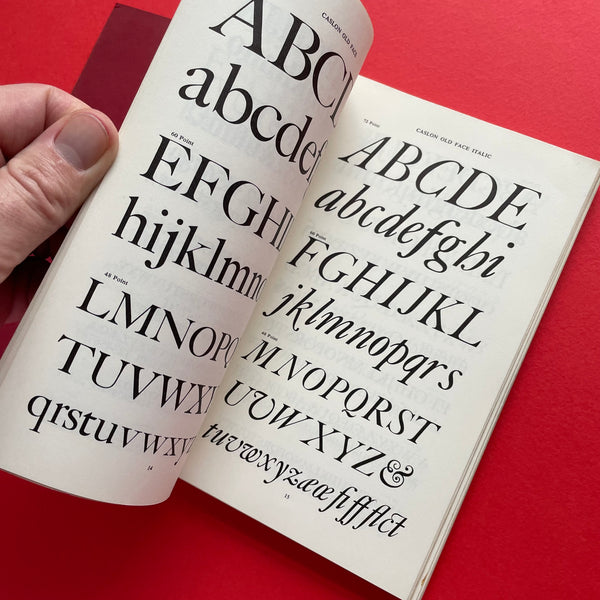 CASLON OLD FACE
ABCD
abcdef
60 Point
EFGHI
hijklmno
48 Point
LMNOPQ
TUVWXY
qrstuvwxyz
14
CASLON OLD FACE ITALIC
72 Point
ABCDE
abcdefghi
60 Point
FGHIJKL
jklmnopqrs
48 Point
MNOPQRST
UVWXYZ&
tuvwxyzæœfiffflct
15